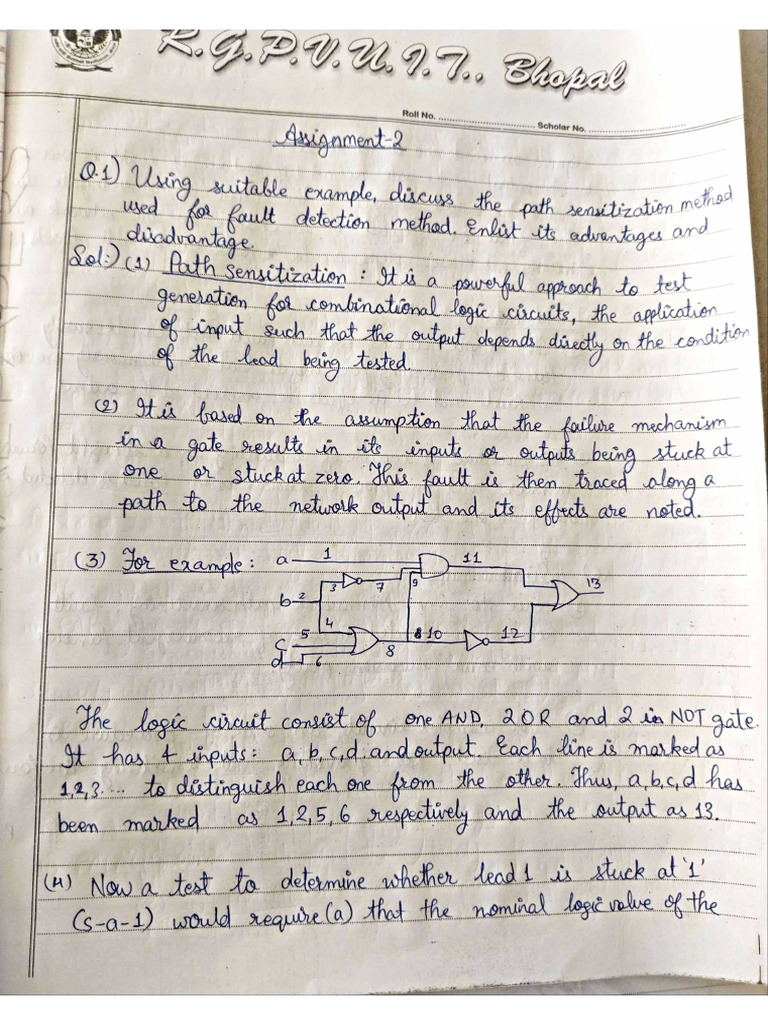 R.G.P.V.U.I.T., Bhopal
Roll No. ........................ Scholar No. ........................
Assignment-2
Q.1) Using suitable example, discuss the path sensitization method
used for fault detection method. Enlist its advantages and
disadvantage.
Sol:) (1) Path Sensitization : It is a powerful approach to test
generation for combinational logic circuits, the application
of input such that the output depends directly on the condition
of the lead being tested.
(2) It is based on the assumption that the failure mechanism
in a gate results in its inputs or outputs being stuck at
one or stuck at zero. This fault is then traced along a
path to the network output and its effects are noted.
(3) For example : a 1 11
3 7 9 13
b 2
4
5 10 12
c 8
d 6
The logic circuit consist of one AND, 2 OR and 2 in NOT gate.
It has 4 inputs: a, b, c, d. and output. Each line is marked as
1,2,3.... to distinguish each one from the other. Thus, a,b,c,d has
been marked as 1,2,5,6 respectively and the output as 13.
(4) Now a test to determine whether lead 1 is stuck at '1'
(s-a-1) would require (a) that the nominal logic value of the